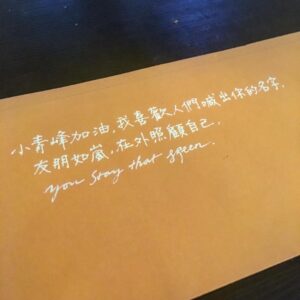 小青峰加油,我喜歡人們喊出你的名字.
友朋如嵐,在外照顧自己.
you stay that green.